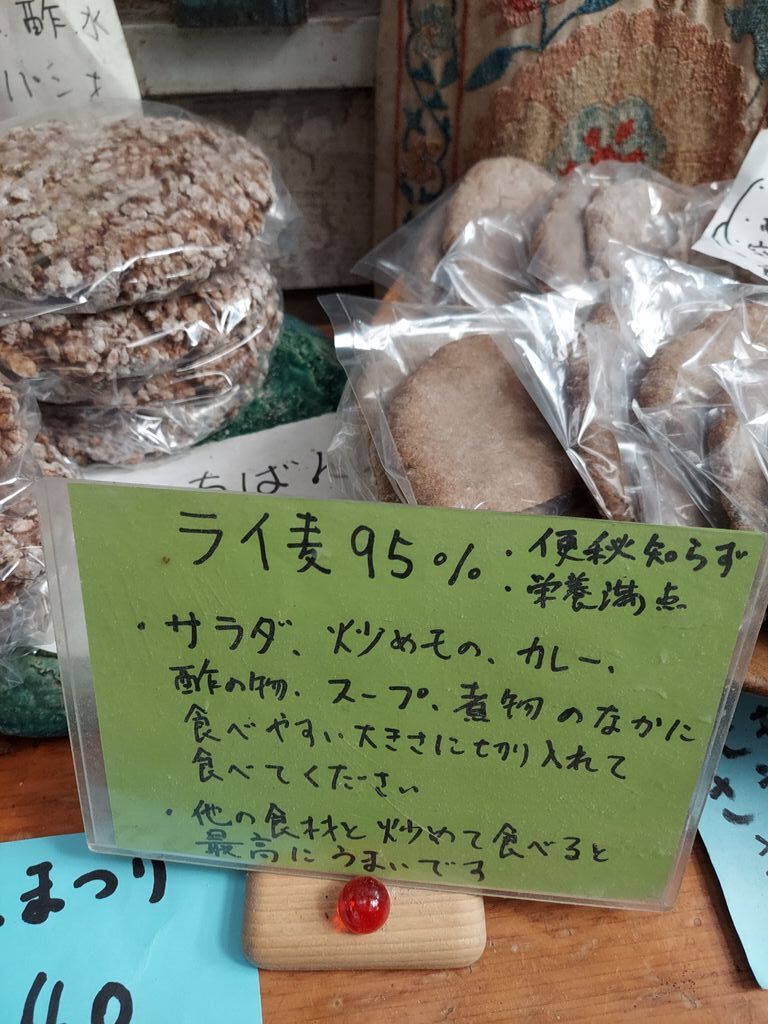 酢水
ちばん
ライ麦95%
・便秘知らず
・栄養満点
・サラダ、炒めモの、カレー、
酢の物、スープ、煮物のなかに
食べやすい大きさに切り入れて
食べてください
・他の食材と炒めて食べると
最高にうまいです
まつり